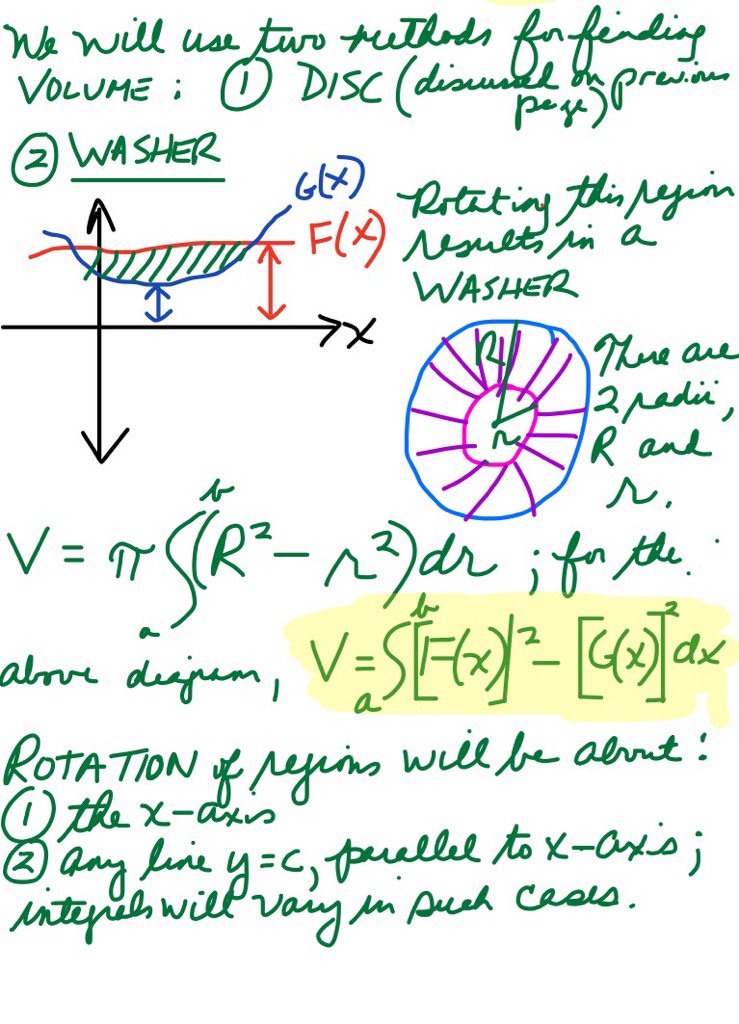 We will use two methods for finding
VOLUME: ① DISC (discussed on previous
page)
② WASHER
G(X)
F(X)
X
Rotating this region
results in a
WASHER
R
r
There are
2 radii,
R and
r.
V = π ∫ₐᵇ (R² − r²) dr ; for the
above diagram, V = ∫ₐᵇ [F(x)]² − [G(x)]² dx
ROTATION of regions will be about:
① the x-axis
② any line y=c, parallel to x-axis;
integrals will vary in such cases.